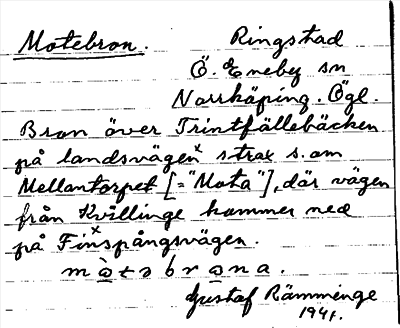 Motebron. Ringstad
Ö. Eneby sn
Norrköping. Ögl.
Bron över Trintfällebäcken
på landsvägen x strax s. om
Mellantorpet [="Mota"], där vägen
från Kvillinge kommer ned
på x Finspångsvägen.
Gustaf Rämminge